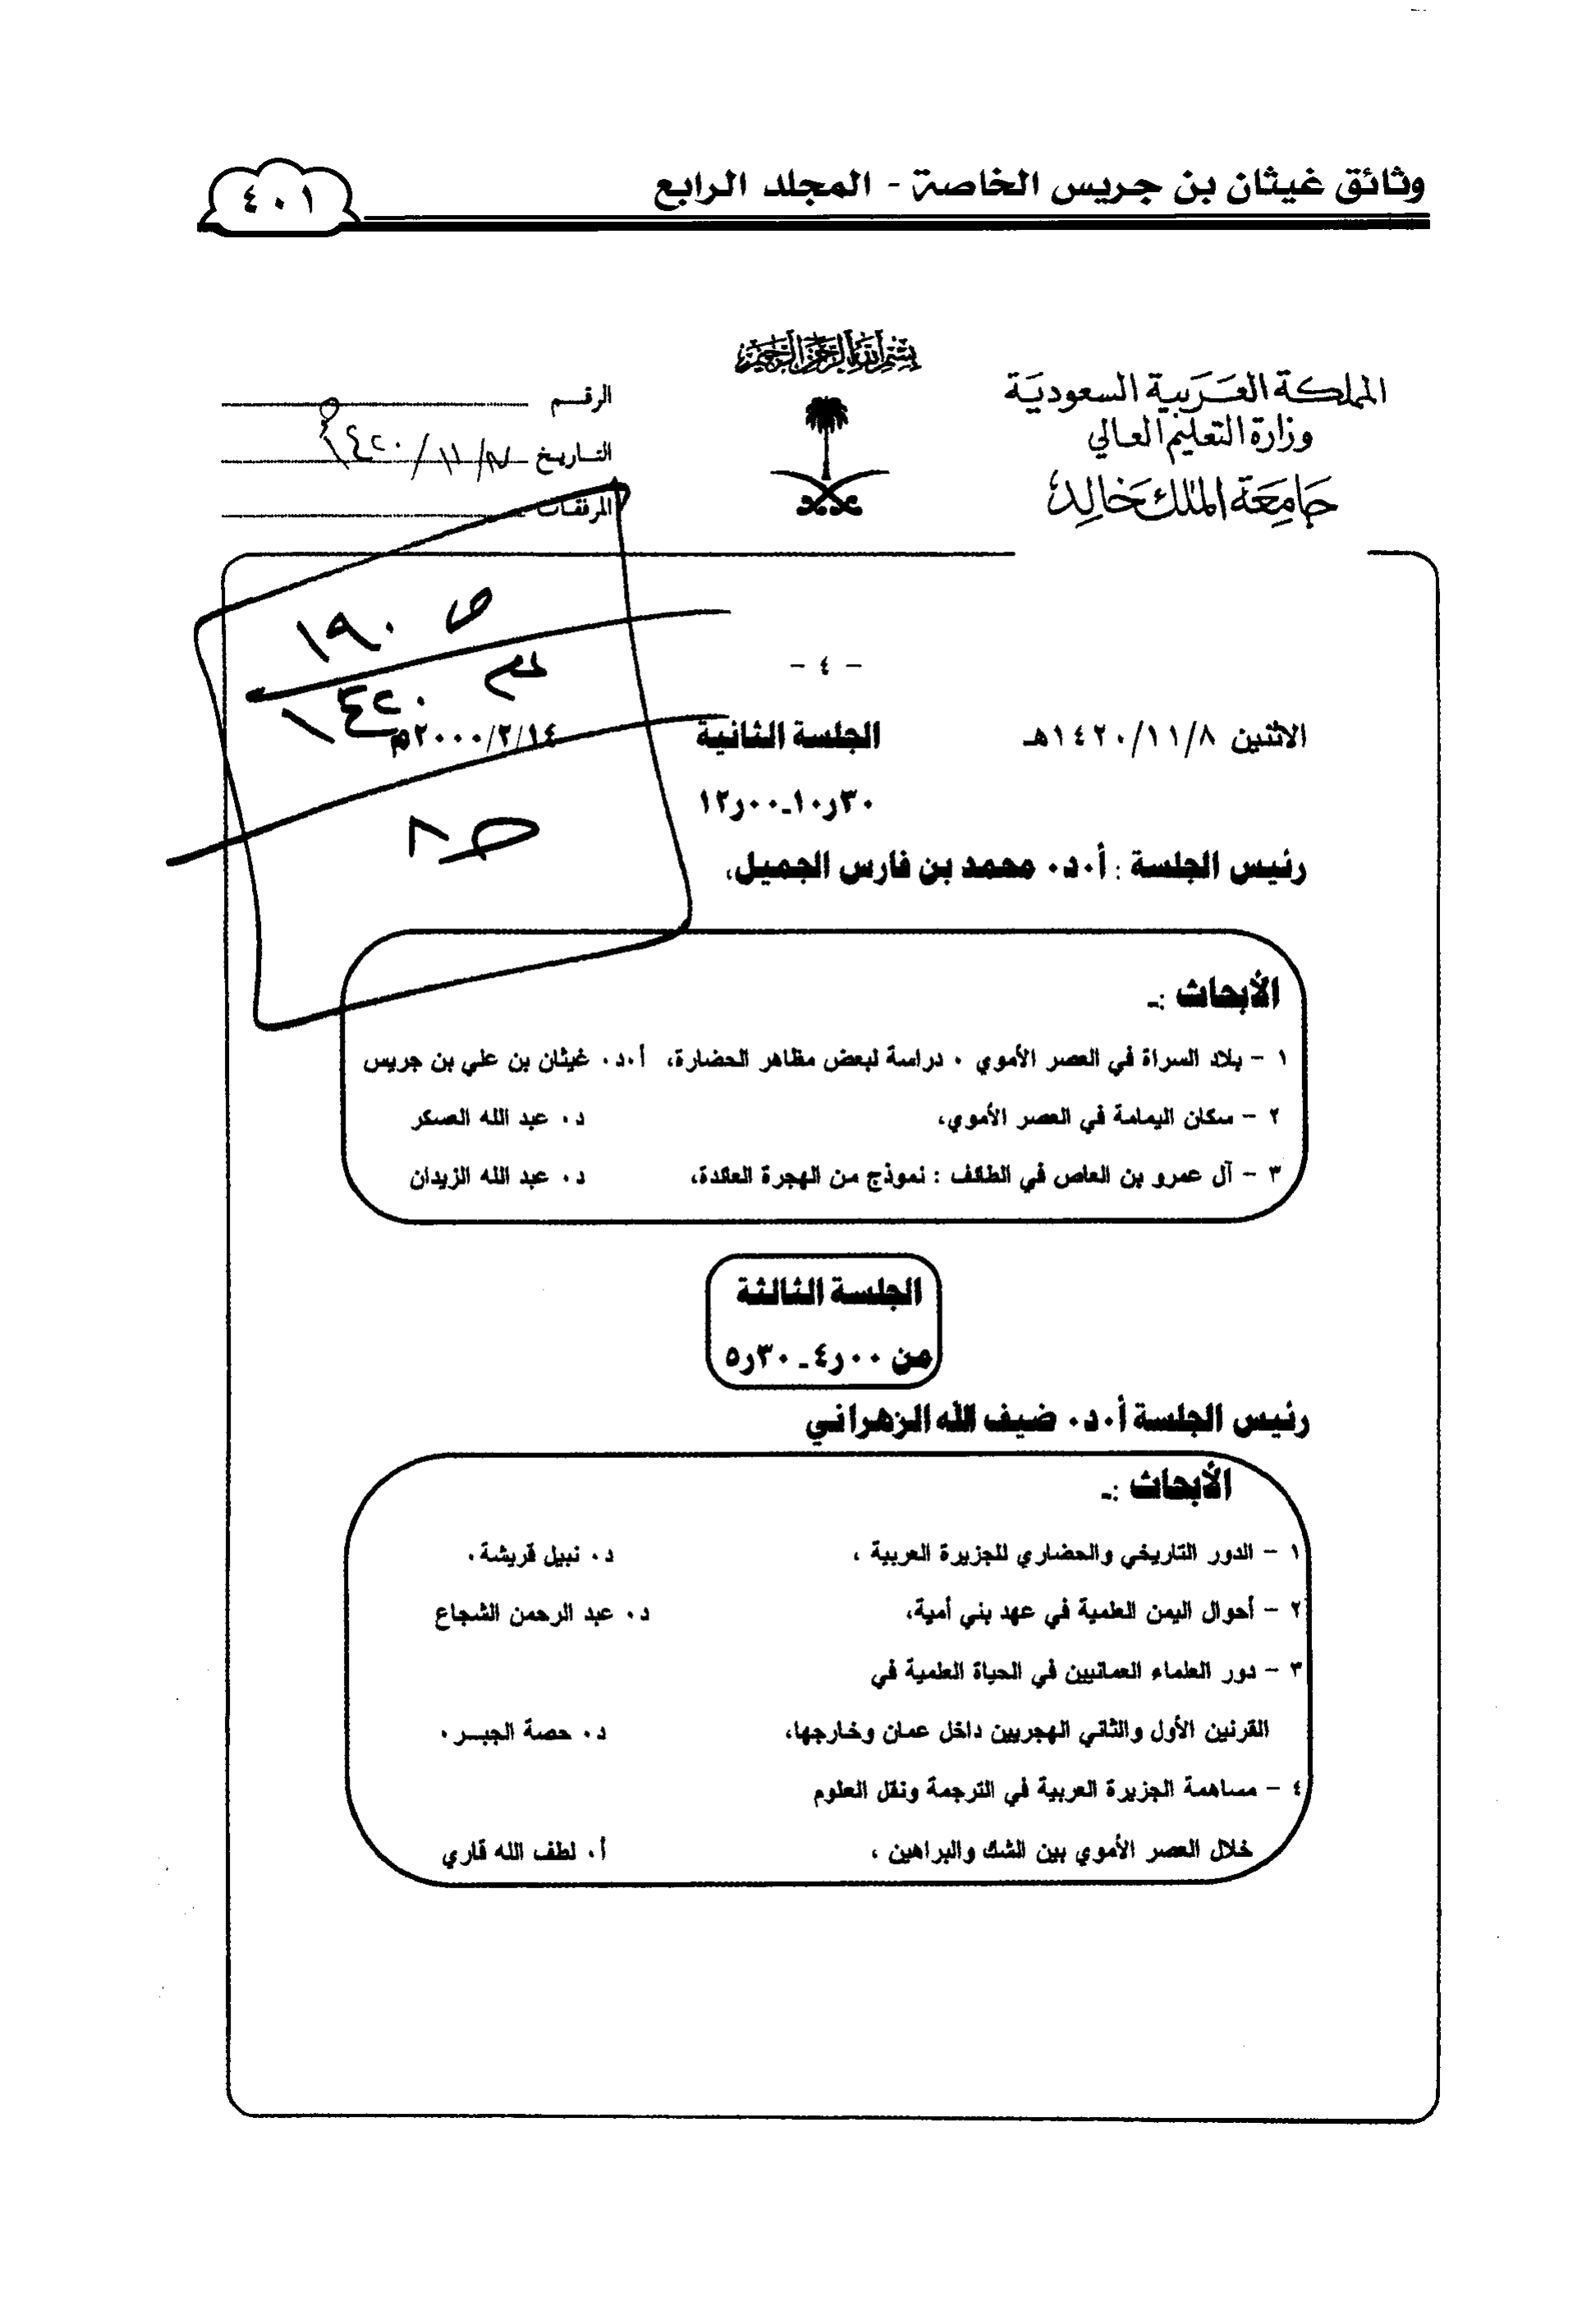 وثائق غيثان بن جريس الخاصة - المجلد الرابع
٤٠١
بسم الله الرحمن الرحيم
المملكة العربية السعودية
وزارة التعليم العالي
جامعة الملك خالد
الرقم
التاريخ
المرفقات
ص ١٩٠
١٤٢٠
ص٨
- ٤ -
الاثنين ١٤٢٠/١١/٨هـ الجلسة الثانية ٢٠٠٠/٢/١٤م
٣٠ر١٠-٠٠ر١٢
رئيس الجلسة : أ٠د٠ محمد بن فارس الجميل،
الأبحاث :-
١ - بلاد السراة في العصر الأموي ٠ دراسة لبعض مظاهر الحضارة، أ٠د٠ غيثان بن علي بن جريس
٢ - سكان اليمامة في العصر الأموي، د٠ عبد الله العسكر
٣ - آل عمرو بن العاص في الطائف : نموذج من الهجرة العائدة، د٠ عبد الله الزيدان
الجلسة الثالثة
من ٠٠ر٤ - ٣٠ر٥
رئيس الجلسة أ٠د٠ ضيف الله الزهراني
الأبحاث :-
١ - الدور التاريخي والحضاري للجزيرة العربية ، د٠ نبيل قريشة ٠
٢ - أحوال اليمن العلمية في عهد بني أمية، د٠ عبد الرحمن الشجاع
٣ - دور العلماء العمانيين في الحياة العلمية في
القرنين الأول والثاني الهجريين داخل عمان وخارجها، د٠ حصة الجبـــر ٠
٤ - مساهمة الجزيرة العربية في الترجمة ونقل العلوم
خلال العصر الأموي بين الشك والبراهين ، أ٠ لطف الله قاري